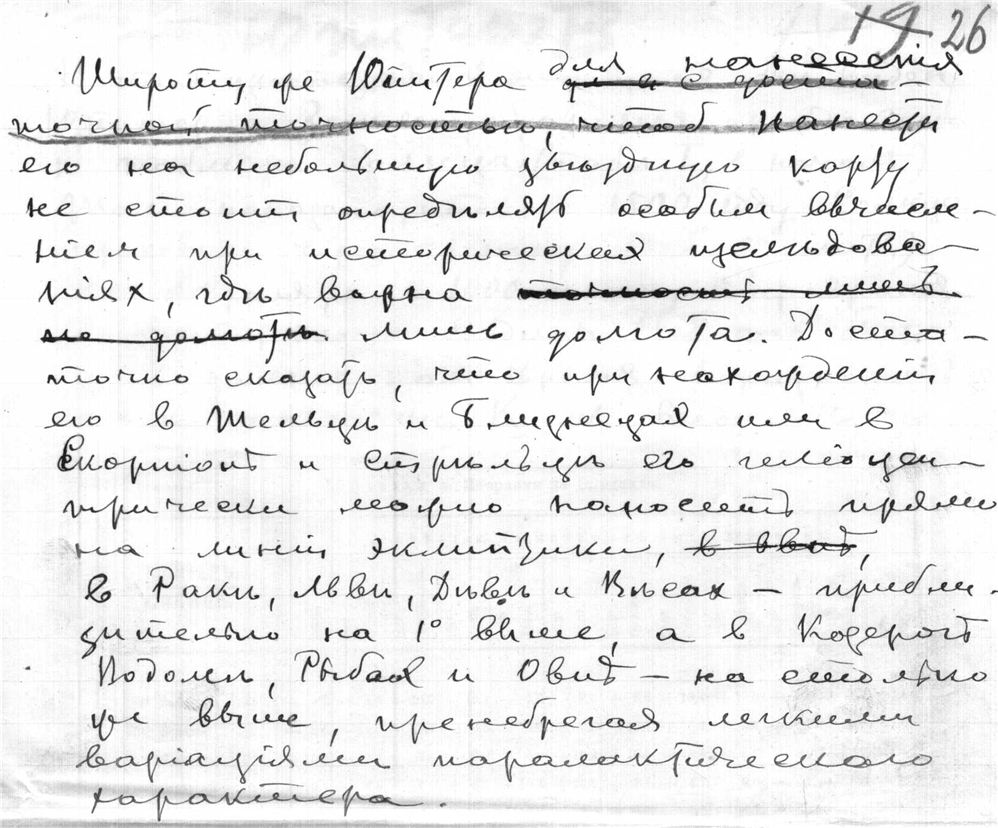 19 26
Широту же Юпитера для нанесения
для с доста
точной точностью, чтоб нанести
его на небольшую звѣздную карту
не стоит опредѣлять особым вычисле-
нием при исторических изслѣдова-
ніях, гдѣ важна
не долготы лишь долгота. Доста-
точно сказать, что при нахожденіи
его в Тельцѣ и Близнецах или в
Скорпіонѣ и Стрѣльцѣ его геліоцен-
трически можно наносить прямо
на линіи эклиптики, в овнѣ,
в Ракѣ, Львѣ, Дѣвѣ и Вѣсах — прибли-
зительно на 1° выше, а в Козерогѣ
Водолѣѣ, Рыбах и Овнѣ — на столько
же выше, пренебрегая легкими
варіаціями паралактического
характера.